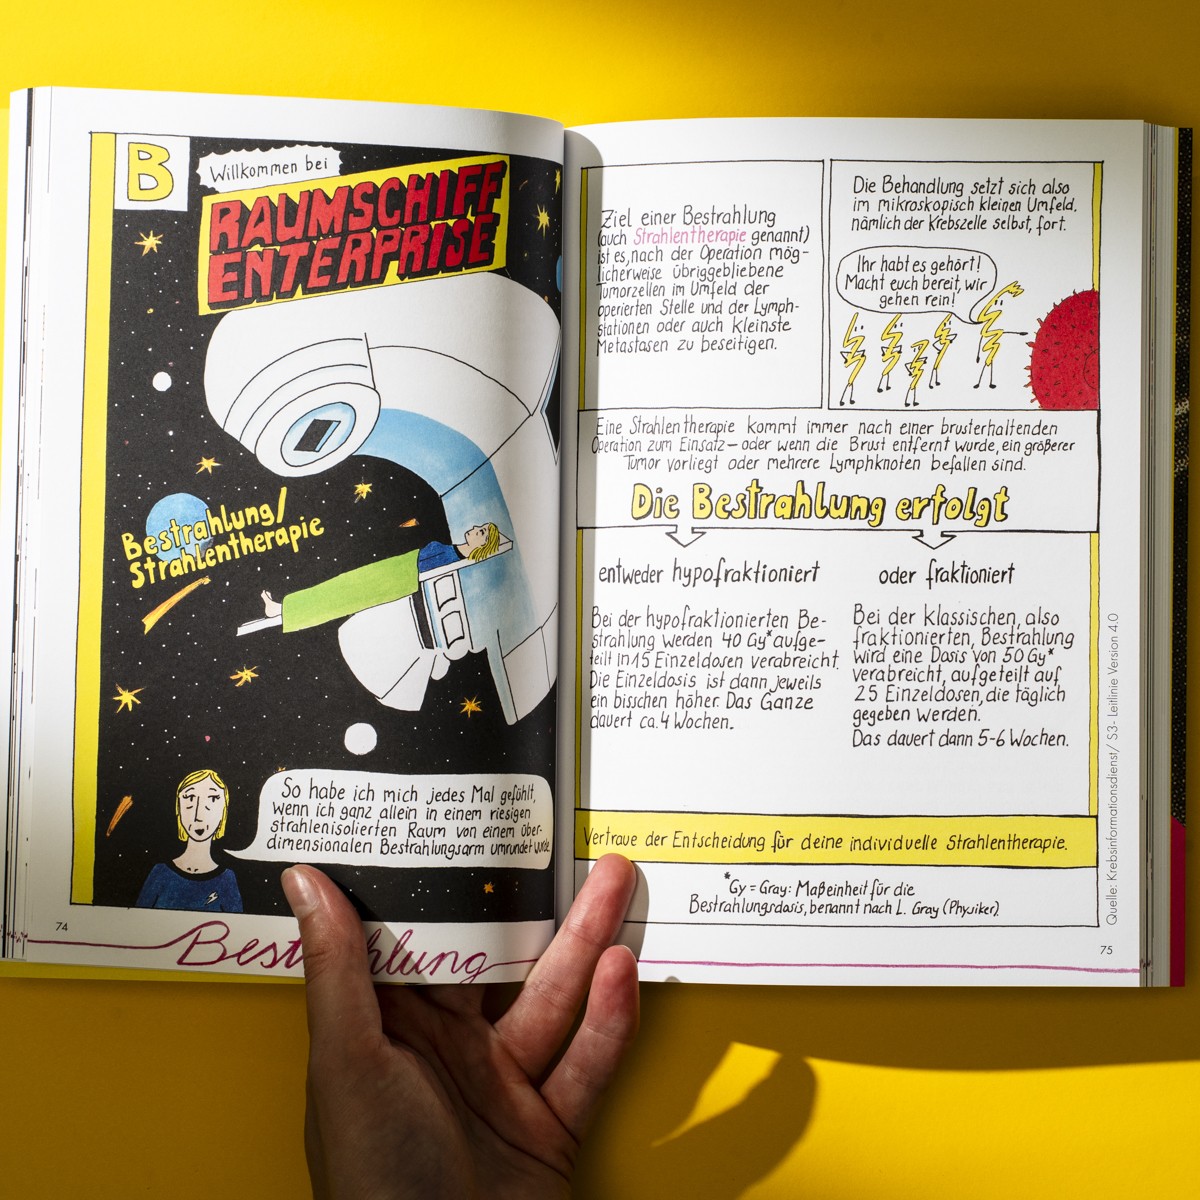 B
Willkommen bei
RAUMSCHIFF
ENTERPRISE
Bestrahlung/
Strahlentherapie
So habe ich mich jedes Mal gefühlt,
wenn ich ganz allein in einem riesigen
strahlenisolierten Raum von einem über-
dimensionalen Bestrahlungsarm umrundet wurde
74
Bestrahlung
Ziel einer Bestrahlung
(auch Strahlentherapie genannt)
ist es, nach der Operation mög-
licherweise übriggebliebene
Tumorzellen im Umfeld der
operierten Stelle und der Lymph-
stationen oder auch kleinste
Metastasen zu beseitigen.
Die Behandlung setzt sich also
im mikroskopisch kleinen Umfeld,
nämlich der Krebszelle selbst, fort.
Ihr habt es gehört!
Macht euch bereit, wir
gehen rein!
Eine Strahlentherapie kommt immer nach einer brusterhaltenden
Operation zum Einsatz – oder wenn die Brust entfernt wurde, ein größerer
Tumor vorliegt oder mehrere Lymphknoten befallen sind.
Die Bestrahlung erfolgt
entweder hypofraktioniert
Bei der hypofraktionierten Be-
strahlung werden 40 Gy* aufge-
teilt in 15 Einzeldosen verabreicht.
Die Einzeldosis ist dann jeweils
ein bisschen höher. Das Ganze
dauert ca. 4 Wochen.
oder fraktioniert
Bei der klassischen, also
fraktionierten, Bestrahlung
wird eine Dosis von 50 Gy*
verabreicht, aufgeteilt auf
25 Einzeldosen, die täglich
gegeben werden.
Das dauert dann 5-6 Wochen.
Vertraue der Entscheidung für deine individuelle Strahlentherapie.
*Gy = Gray: Maßeinheit für die
Bestrahlungsdosis, benannt nach L. Gray (Physiker).
Quelle: Krebsinformationsdienst/ S3- Leitlinie Version 4.0
75